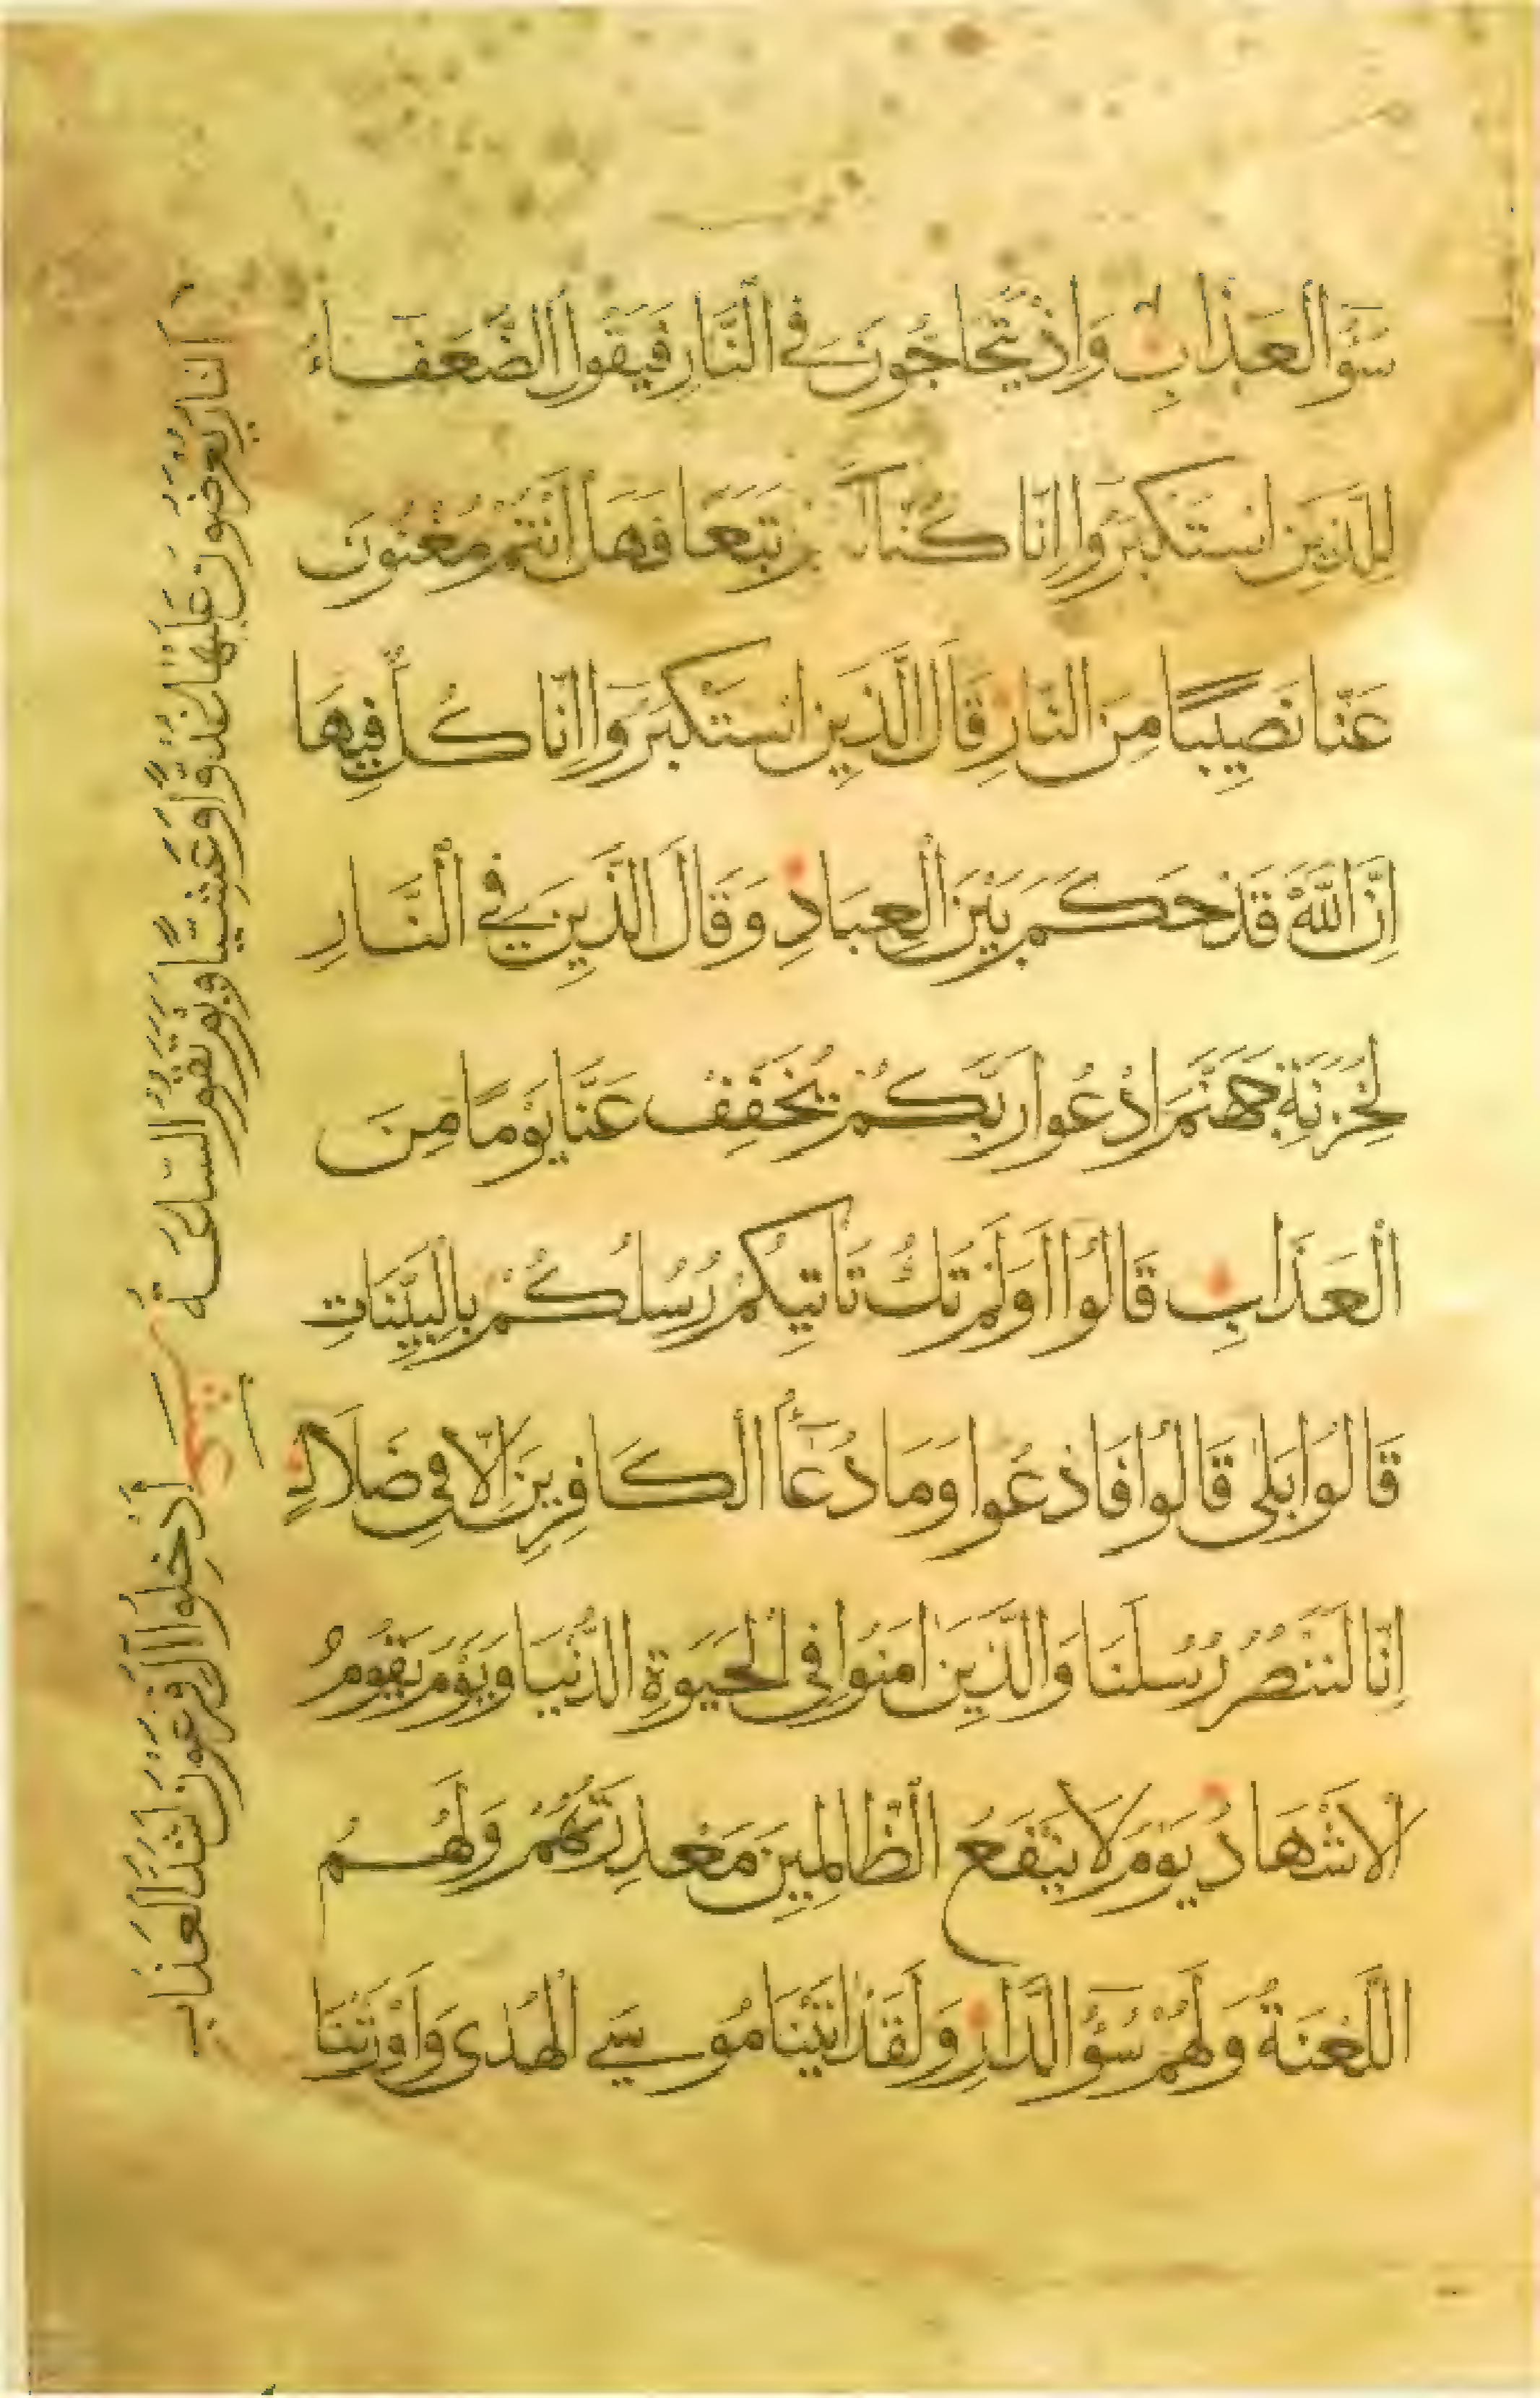 سُوٓءُ الْعَذَابِ وَاِذْ يَتَحَاجُّونَ فِي النَّارِ فَيَقُولُ الضُّعَفَاءُ
لِلَّذِينَ اسْتَكْبَرُوا اِنَّا كُنَّا تَبَعًا فَهَلْ اَنْتُمْ مُغْنُونَ
عَنَّا نَصِيبًا مِنَ النَّارِ قَالَ الَّذِينَ اسْتَكْبَرُوا اِنَّا كُلٌّ فِيهَا
اِنَّ اللَّهَ قَدْ حَكَمَ بَيْنَ الْعِبَادِ وَقَالَ الَّذِينَ فِي النَّارِ
لِخَزَنَةِ جَهَنَّمَ ادْعُوا رَبَّكُمْ يُخَفِّفْ عَنَّا يَوْمًا مِنَ
الْعَذَابِ قَالُوا اَوَلَمْ تَكُ تَاْتِيكُمْ رُسُلُكُمْ بِالْبَيِّنَاتِ
قَالُوا بَلَى قَالُوا فَادْعُوا وَمَا دُعَٓاءُ الْكَافِرِينَ اِلَّا فِي ضَلَالٍ
اِنَّا لَنَنْصُرُ رُسُلَنَا وَالَّذِينَ اٰمَنُوا فِي الْحَيٰوةِ الدُّنْيَا وَيَوْمَ يَقُومُ
الْاَشْهَادُ يَوْمَ لَا يَنْفَعُ الظَّالِمِينَ مَعْذِرَتُهُمْ وَلَهُمُ
اللَّعْنَةُ وَلَهُمْ سُوٓءُ الدَّارِ وَلَقَدْ اٰتَيْنَا مُوسَي الْهُدَى وَاَوْرَثْنَا
النَّارُ يُعْرَضُونَ عَلَيْهَا غُدُوًّا وَعَشِيًّا وَيَوْمَ تَقُومُ السَّاعَةُ
اَدْخِلُوا اٰلَ فِرْعَوْنَ اَشَدَّ الْعَذَابِ